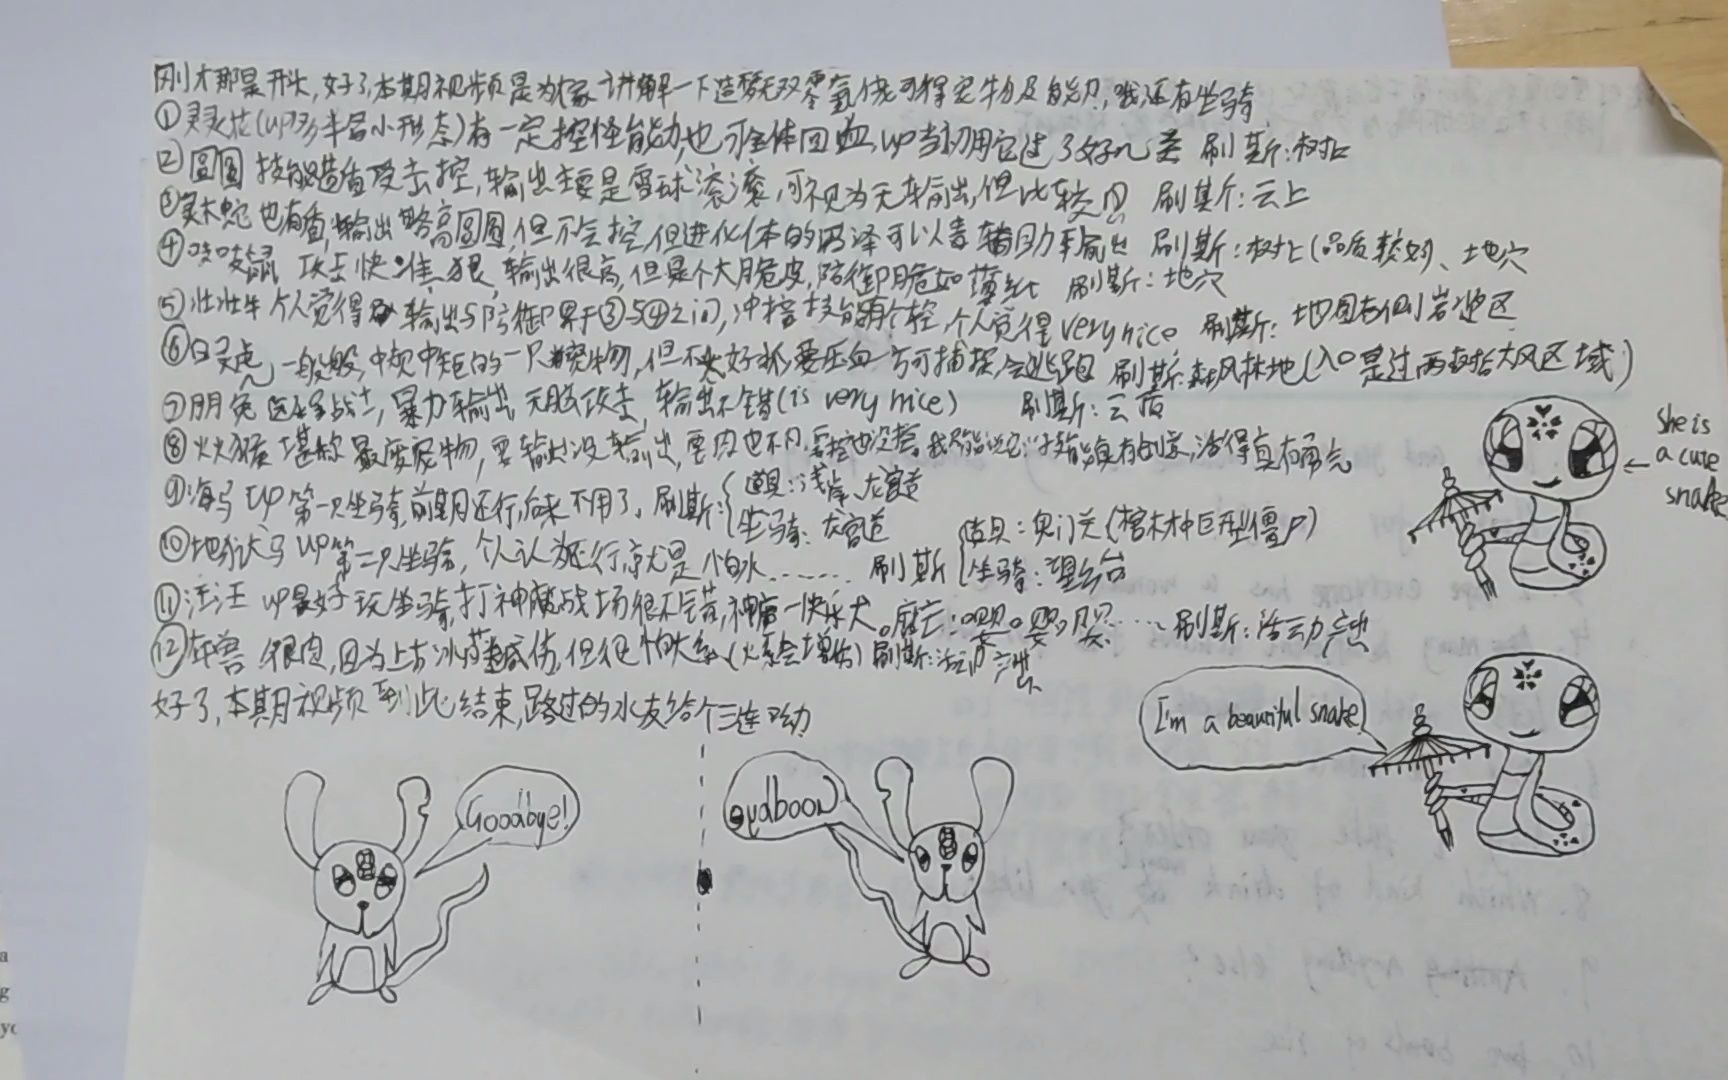 刚才那是开头,好了,本期视频是为大家讲解一下造梦无双零氪佬可得宠物及能力,哦还有坐骑
①灵灵花(up多半召小形态)有一定控怪能力,也可全体回血,up当初用它过了好几关 刷新:树上
②圆圆 技能造盾攻击控,输出主要是雪球滚滚,可视为无输出,但比较肉 刷新:云上
③灵木蛇也有盾,输出略高圆圆,但不会控,但进化体的沼泽可以毒辅助手输出 刷新:树上(品质较好)、地穴
④吱吱鼠 攻击快、准、狠,输出很高,但是个大脆皮,防御脆如薄纸 刷新:地穴
⑤壮壮牛 个人觉得输出与防御界于③与④之间,冲撞技能有个控,个人觉得very nice 刷新:地图右侧岩边区
⑥白灵虎,一般般,中规中矩的一只宠物,但不太好抓,要压血方可捕捉,会逃跑 刷新:森风林地(入口是过两树抬大风区域)
⑦朋兔 近战战士,暴力输出,无脑攻击,输出不错(is very nice) 刷新:云店
⑧火火猴 堪称最废宠物,要输出没输出,要肉也不肉,要控也没控,我只能说它:技能真有创意,活得真有勇气
⑨海马 up第一只坐骑,前期还行,后来不用了。刷新:{道具:浅岸、龙宫道
坐骑:龙宫道
⑩地狱犬马 up第二只坐骑,个人认为还行,就是怕水…… 刷新{道具:鬼门关(棺木林中巨型僵尸)
坐骑:望乡台
⑪汪汪 up最好玩坐骑,打神魔战场很不错,神魔一快乐犬。魔王:嘤。嘤,嘤…… 刷新:活动产出
⑫年兽 很肉,因为上古冰莲减伤,但很怕火系(火系会增伤)刷新:活动产出
好了,本期视频到此结束,路过的水友给个三连呦
she is
a cute
snake
I'm a beautiful snake!
Goodbye!
eydbooG